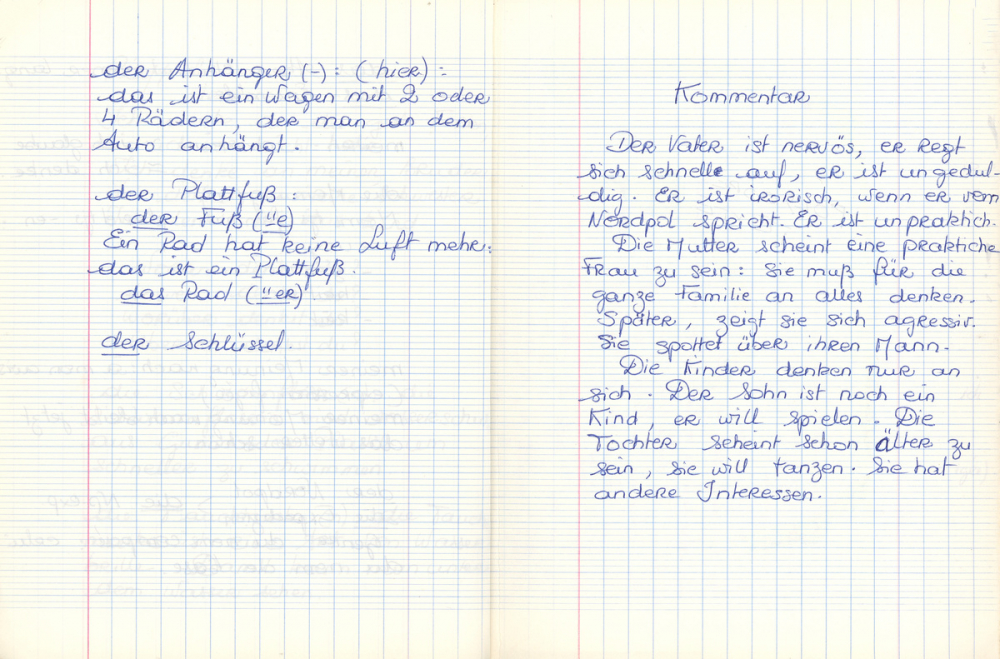 der Anhänger (-): (hier):
das ist ein Wagen mit 2 oder
4 Rädern, der man an dem
Auto anhängt.
der Plattfuß:
der Fuß (¨e)
Ein Rad hat keine Luft mehr:
das ist ein Plattfuß.
das Rad (¨er)
der Schlüssel.
Kommentar
Der Vater ist nervös, er regt
sich schnelle auf, er ist ungedul-
dig. Er ist irorisch, wenn er vom
Nordpol spricht. Er ist unpraktich.
Die Mutter scheint eine praktiche
Frau zu sein: Sie muß für die
ganze Familie an alles denken.
Später, zeigt sie sich agressiv.
Sie spottet über ihren Mann.
Die Kinder denken nur an
sich. Der Sohn ist noch ein
Kind, er will spielen. Die
Tochter scheint schon älter zu
sein, sie will tanzen. Sie hat
andere Interessen.